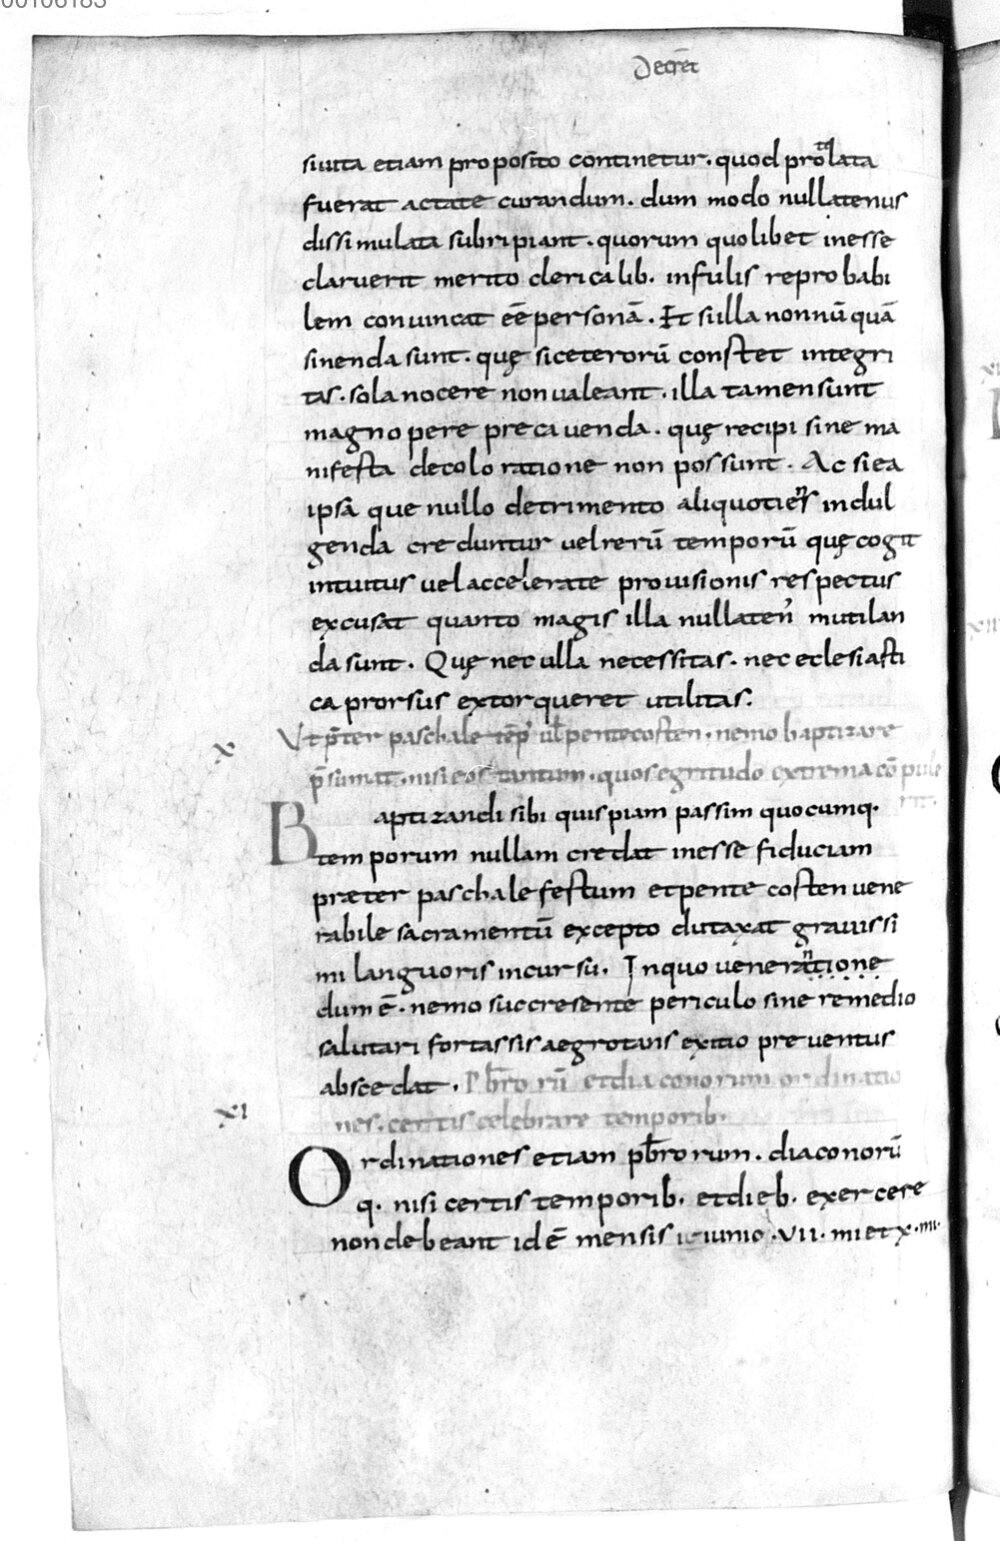 00106183
Decret̄
siuita etiam proposito continetur. quod protlata
fuerat actate curandum. dum modo nullatenus
dissimulata subripiant. quorum quolibet inesse
claruerit merito clericalib. infulis reprobabi
lem conuincat eē personā. Et si illa nonnū quā
sinenda sunt. quę si ceterorū constet integri
tas. sola nocere non ualeant. illa tamen sunt
magno pere precauenda. quę recipi sine ma
nifesta decolo ratione non possunt. Ac si ea
ipsā que nullo detrimento aliquotiens indul
genda creduntur uel rerū temporū quę cogit
intuitus uel accelerate prouisionis respectus
excusat quanto magis illa nullaten' mutilan
da sunt. Quę nec ulla necessitas. nec eclesiasti
ca prorsus extorqueret utilitas.
X Vt p̄ter paschale tēp' ul pentecosten. nemo baptizare
p̄sumat. nisi eos tantum. quos egritudo extrema cō pule
rit.
Baptizandi sibi quispiam passim quocumq.
temporum nullam credat inesse fiduciam
præter paschale festum et pentecosten uene
rabile sacramentū excepto dutaxat grauissi
mi languoris incursu. In quo venerantione
dum ē. nemo succresente periculo sine remedio
salutari fortassis aegrotans exitio preuentus
abscedat. Pb̄ro rū et diaconorum ordinatio
XI nes. certis celebrare temporib.
Ordinationes etiam pb̄rorum. diaconorū
q. nisi certis temporib. et dieb. exercere
non debeant id ē mensis ieiunio. VII. mi et X. mi.